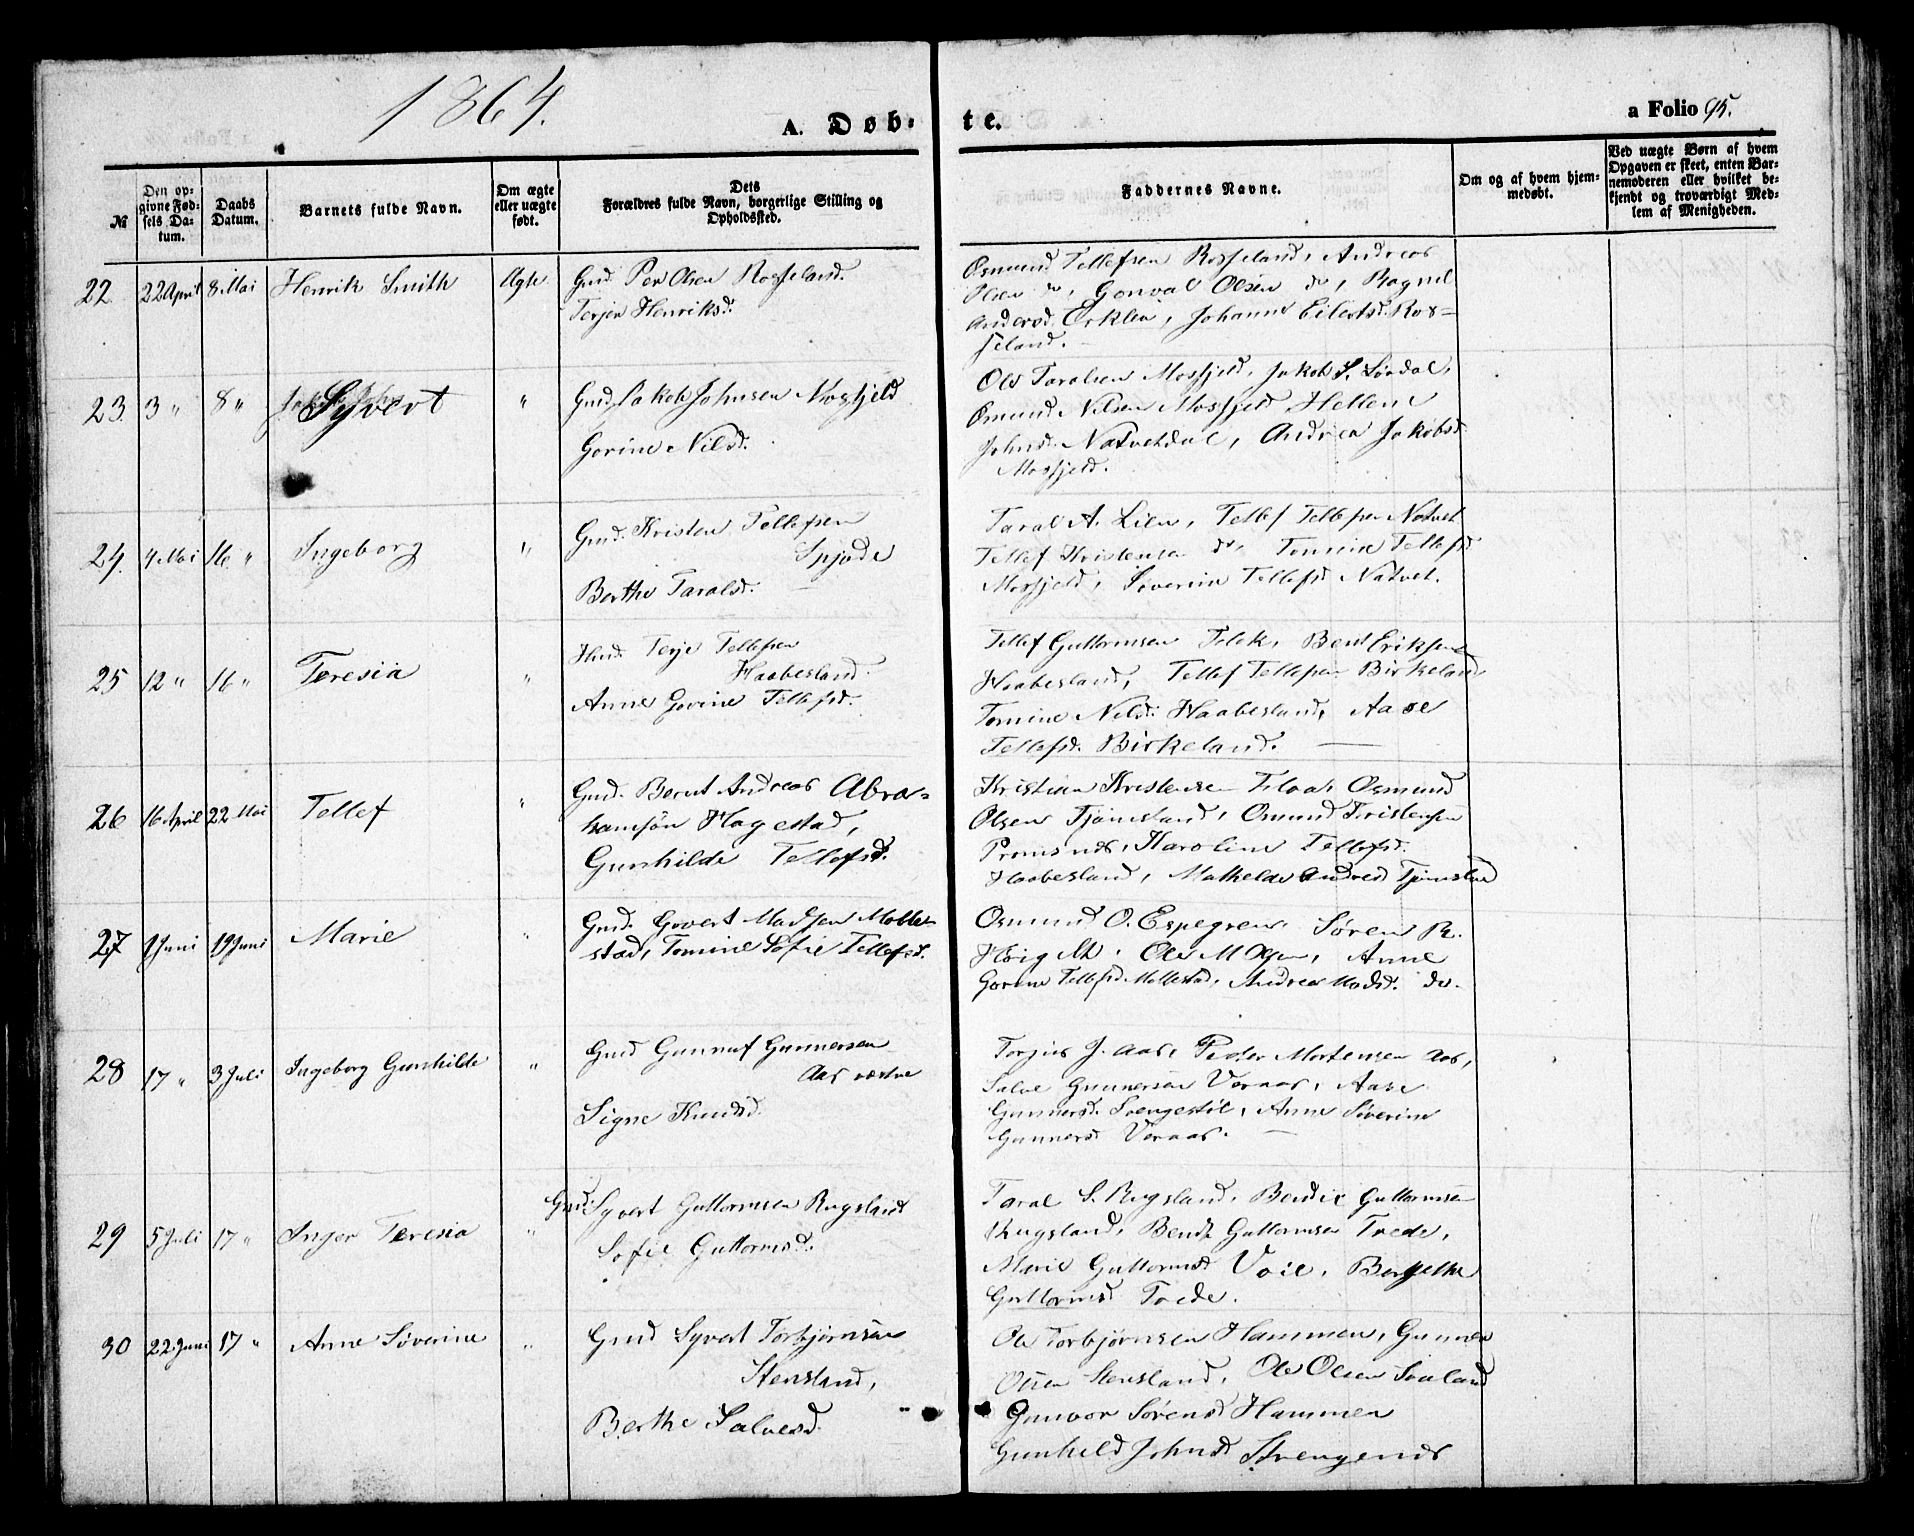 1864.
A. Døb-
te.
a Folio 95.
№
Den op-
givne Fød-
sels Da-
tum.
Daabs
Datum.
Barnets fulde Navn.
Om ægte
eller uægte
født.
Dets
Forældres fulde Navn, borgerlige Stilling og
Opholdssted.
Faddernes Navne.
Om og af hvem hjem-
medøbt.
Ved uægte Børn af hvem
Opgaven er skeet, enten Bar-
nemoderen eller hvilket be-
kjendt og troværdigt Med-
lem af Menigheden.
22 22 April 8 Mai Henrik Smith Ægte
Gmd. Per Olsen Rosseland.
Terjer Henriksd.
Osmund Tellefsen Rosseland, Andreas
Olsen do, Gonval Olsen do, Ragnil
Andersd. Erklev, Johanne Eilertsd. Ros-
seland.
23. 3 " 8 " Syvert "
Gmd. Jakob Johnsen Mosfjeld
Gorine Nilsd.
Ole Taralsen Mosfjeld, Jakob S. Lördal,
Osmund Nilsen Mosfjeld Hellene
Johnsd. Natvetdal, Andrea Jakobsd.
Mosfjeld.
24. 4 Mai 16 " Ingeborg "
Gmd. Kristen Tellefsen
Spjode
Berthe Taralsd.
Taral A. Lien, Tellef Tellefsen Natvet
Tellef Kristensen do, Tomine Tellefsd
Mosfjeld, Severine Tellefsd Natvet.
25 12 " 16 " Teresia "
Hmd. Terje Tellefsen
Haabesland.
Anne Gorine Tellefsd.
Tellef Guttormsen Flak, Bent Eriksen
Haabesland, Tellef Tellefsen Birkeland
Tomine Nilsd. Haabesland, Aase
Tellefsd. Birkeland.
26 16 April 22 Mai Tellef "
Gmd. Bernt Andreas Abra-
hamsön Hagestad,
Gunhilde Tellefsd.
Kristian Kristensen Flaa, Osmund
Olsen Tjömsland, Osmund Kristensen
Karoline Tellefsd.
Haabesland, Mathilde Andresd Tjömsland
27 1 Juni 19 Juni Marie "
Gmd. Govert Madsen Molle-
stad, Tomine Sofie Tellefsd.
Osmund O. Espegren, Søren R.
Ole M Olsen, Anne
Gorine Tellefsd Mollestad, Andrea Madsd. do.
28 17 " 3 Juli Ingeborg Gunhilde "
Gmd Gunnuf Gunnersen
Aas vestre
Signe Knudsd.
Torjus J. Aas, Peder Mortensen Aas,
Salve Gunnersen Veraas, Aase
Gunnersd. Svengestöl, Anne Severine
Gunnersd Veraas.
29 5 Juli 17 " Inger Teresia "
Gmd. Syvert Guttormsen Rugsland
Sofie Guttormsd.
Taral S. Rugsland, Bendix Guttormsen
Rugsland, Bendt Guttormsen Trede,
Marie Guttormsd Voie, Bergethe
Guttormsd Trede.
30 22 Juni 17 " Anne Söverine "
Gmd Syvert Torbjörnsen
Stensland,
Berthe Salvesd.
Ole Torbjörnsen Hammen, Gunner
Olsen Stensland, Ole Olsen
Gunvor Sörensd Hammen
Gunhild Johnsd